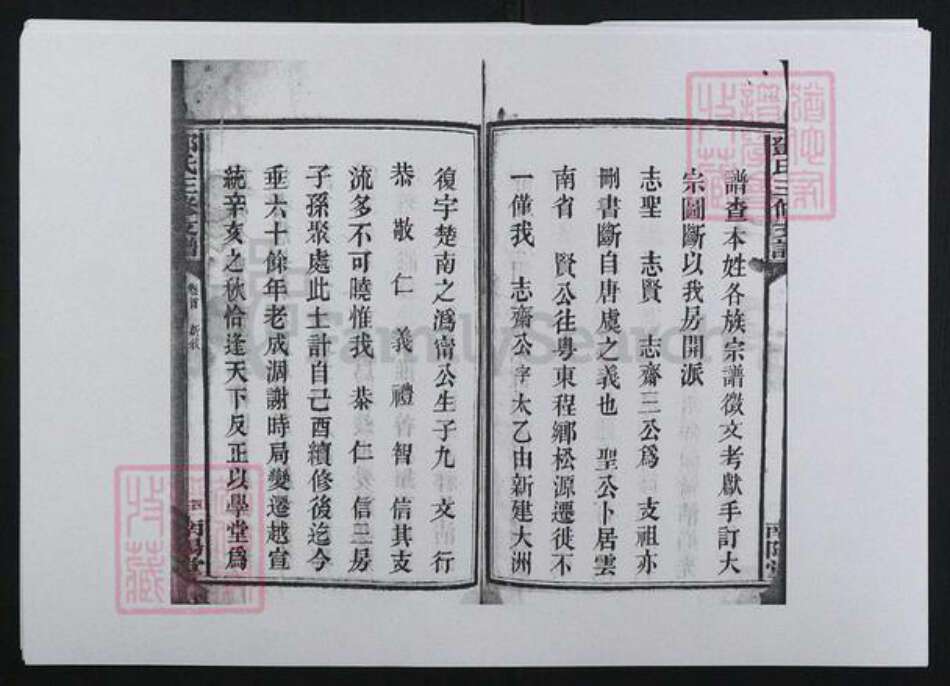 鄧氏三修支譜
譜查本姓各族宗譜徵文考獻手訂大
宗圖斷以我房開派
志聖 志賢 志齋三公爲 支祖亦
刪書斷自唐虞之義也 聖公卜居雲
南省 賢公往粵東程鄉松源遷徙不
一僅我 志齋公字太乙由新建大洲
復宇楚南之溈甯公生子九 文 行
恭 敬 仁 義 禮 智 信其支
流多不可曉惟我 恭 仁 信三房
子孫聚處此土計自己酉續修後迄今
垂六十餘年老成凋謝時局變遷越宣
統辛亥之秋恰逢天下反正以學堂爲
氏三修支譜
卷首
南陽堂
南陽堂
FamilySearch
收藏
收藏